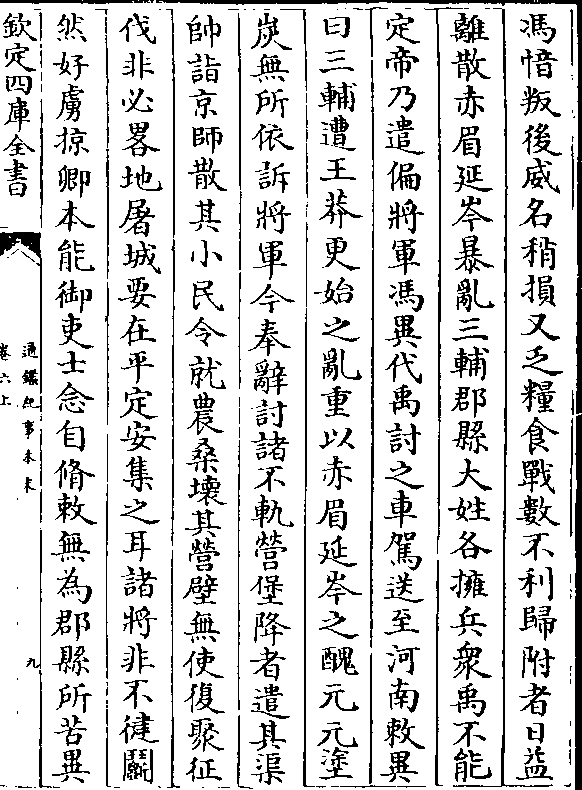 馮愔叛後威名稍損又乏糧食戰數不利歸附者日益
離散赤眉延岑暴亂三輔郡縣大姓各擁兵衆禹不能
定帝乃遣偏將軍馮異代禹討之車駕送至河南敕異
曰三輔遭王莽更始之亂重以赤眉延岑之醜元元塗
炭無所依訴將軍今奉辭討諸不軌營堡降者遣其渠
帥詣京師散其小民令就農桑壞其營壁無使復聚征
伐非必畧地屠城要在平定安集之耳諸將非不健鬭
然好虜掠卿本能御吏士念自脩敕無為郡縣所苦異
欽定四庫全書
通鑑紀事本末
卷六上
九